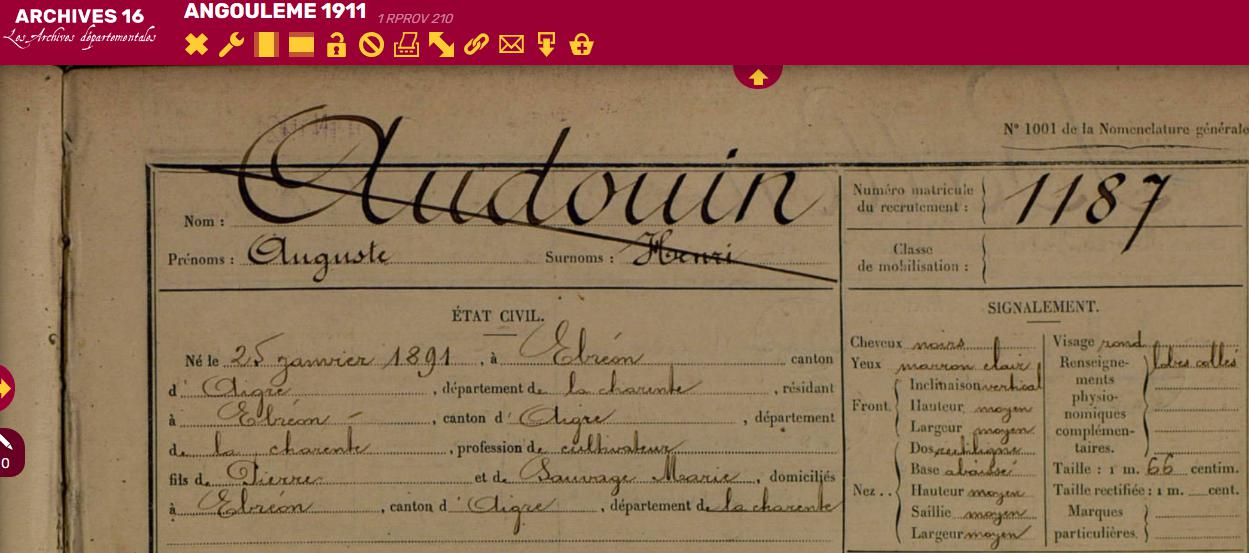 ARCHIVES 16
Les Archives départementales
ANGOULEME 1911 1 RPROV 210
N° 1001 de la Nomenclature générale
Nom : Audouin
Prénoms : Auguste Surnoms : Henri
Numéro matricule du recrutement : 1187
Classe de mobilisation :
ÉTAT CIVIL.
Né le 25 janvier 1891, à Ebréon canton
d' Aigre, département de la charente, résidant
à Ebréon, canton d' Aigre, département
de la charente, profession de cultivateur
fils de Pierre et de Sauvage Marie, domiciliés
à Ebréon, canton d' Aigre, département de la charente
SIGNALEMENT.
Cheveux noirs
Yeux marron clair
Front.
Inclinaison vertical
Hauteur moyen
Largeur moyen
Nez..
Dos rectiligne
Base abaissé
Hauteur moyen
Saillie moyen
Largeur moyen
Visage rond
Renseignements physionomiques complémentaires. lobes collés
Taille : 1 m. 66 centim.
Taille rectifiée : 1 m. cent.
Marques particulières.
0